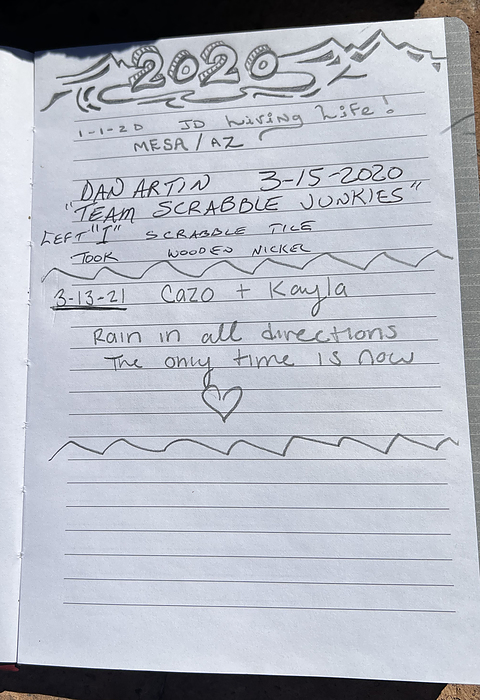 2020
1-1-20 JD Living Life!
MESA/AZ
DAN ARTIN 3-15-2020
"TEAM SCRABBLE JUNKIES"
LEFT "I" SCRABBLE TILE
TOOK WOODEN NICKEL
3-13-21 Cazo + Kayla
Rain in all directions
The only time is now